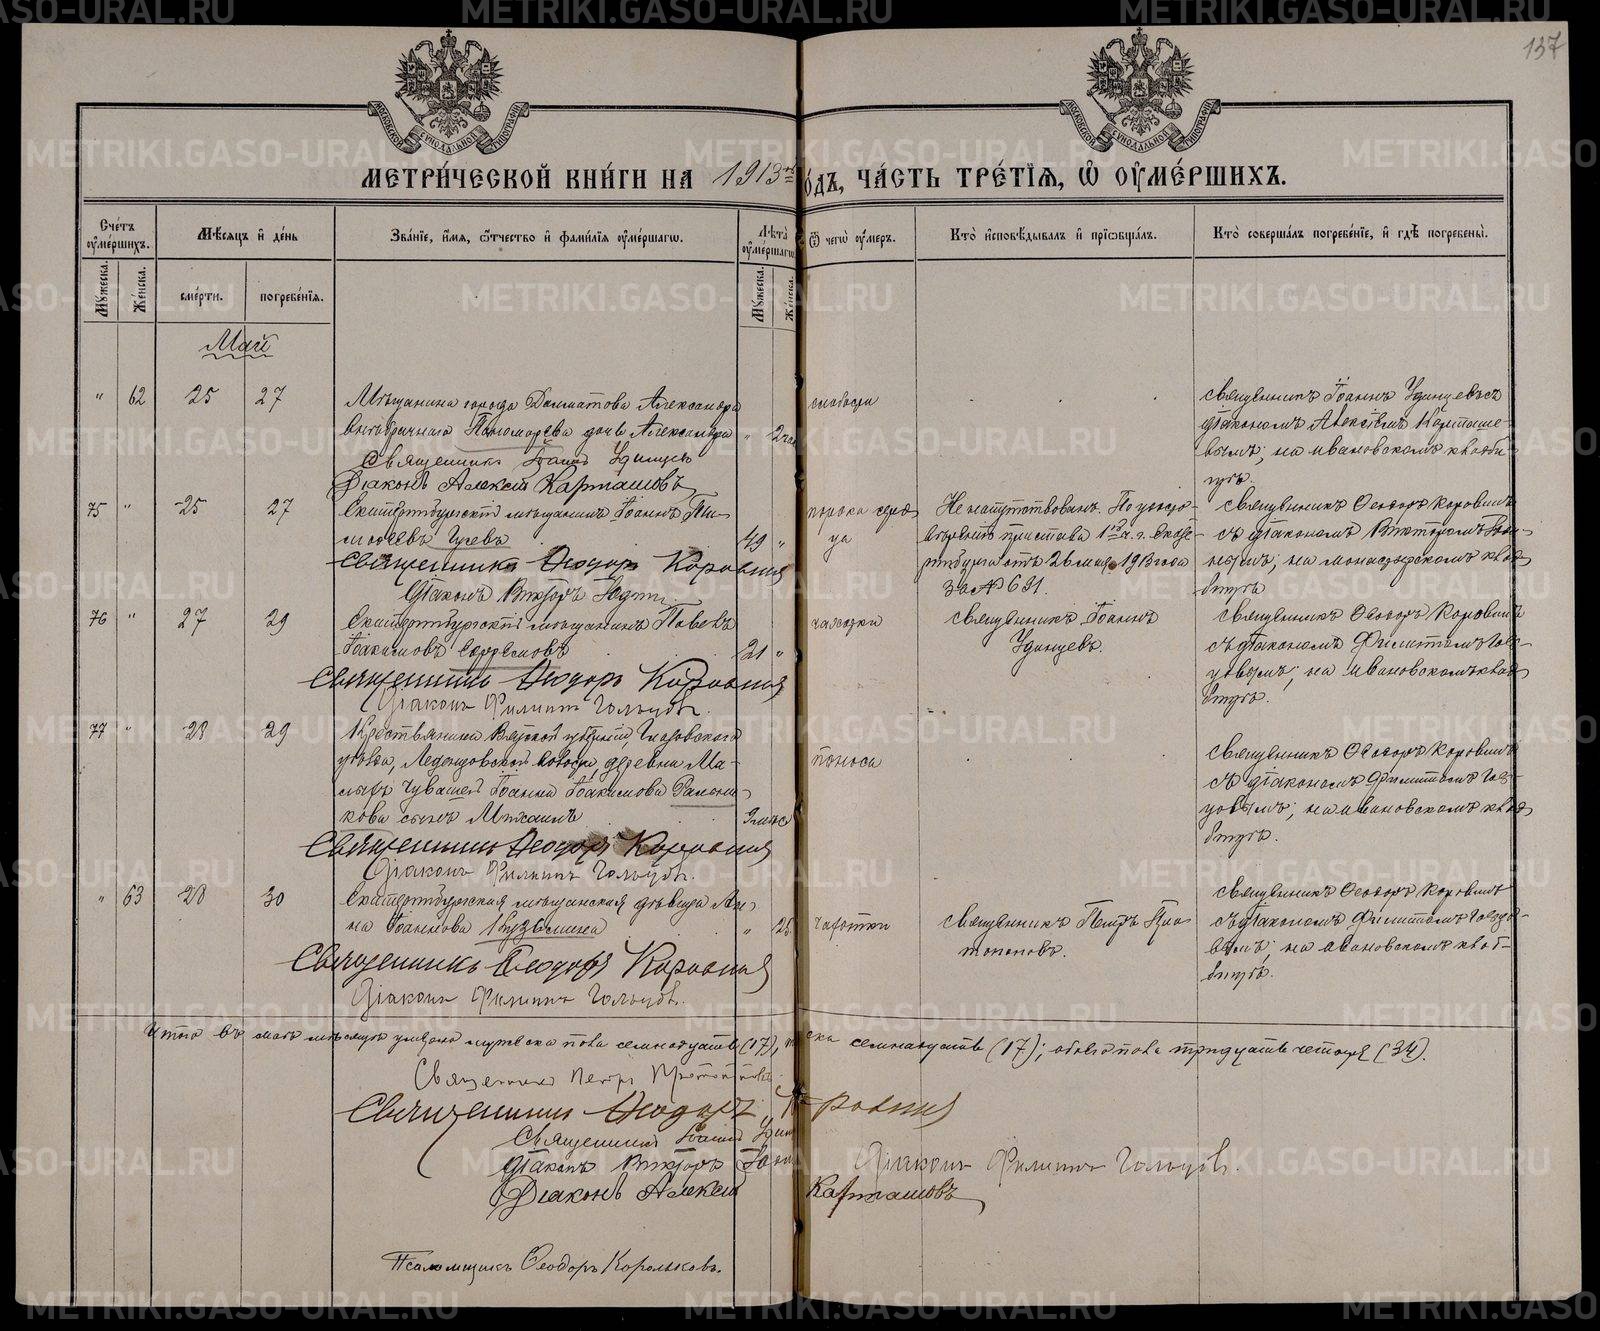 137
МОСКОВСКОЙ СУНОДАЛЬНОЙ ТИПОГРАФІИ
МОСКОВСКОЙ СУНОДАЛЬНОЙ ТИПОГРАФІИ
МЕТРИ́ЧЕСКОЙ КНИ́ГИ НА 1913 ГО́ДЪ, ЧА́СТЬ ТРЕ́ТІѦ, Ѡ ОУМЕ́РШИХЪ.
Сче́тъ оуме́ршихъ.
Мѣсяцъ и день
Зва́ніе, имя, ѻтчество и фами́лія оуме́ршагѡ.
Лѣта оуме́ршагѡ
Ѿ чегѡ оумеръ.
Кто исповѣдывалъ и пріѡбщалъ.
Кто соверша́лъ погребе́ніе, и гдѣ погребены.
Мужеска. Женска.
смерти. погребе́нія.
Мужеска. Женска.
Май
" 62 25 27
Мѣщанина города Далматова Александра
Пономарева дочь Александра "
Священникъ Іоаннъ Удинцевъ
Діаконъ Алексій Карташовъ
слабости
священникъ Іоаннъ Удинцевъ съ
діакономъ Алексіемъ Карташе-
вымъ; на ивановскомъ кладби-
щѣ.
75 " 25 27
Екатеринбургскій мѣщанинъ Іоаннъ Ти-
моѳеевъ Гусевъ 49 "
Священникъ Ѳеодоръ Коровинъ
Діаконъ Викторъ
порока серд
ца
Не напутствованъ. По удосто-
вѣренію пристава 1й ч. г. Екате-
ринбурга отъ 26 мая 1913 года
за № 691.
священникъ Ѳеодоръ Коровинъ
съ діакономъ Викторомъ
на монастырскомъ клад
бищѣ
76 " 27 29
Екатеринбургскій мѣщанинъ Павелъ
Іоакимовъ Ефремовъ 21 "
Священникъ Ѳеодоръ Коровинъ
Діаконъ Филиппъ Гольцовъ.
чахотки
священникъ Іоаннъ
Удинцевъ.
священникъ Ѳеодоръ Коровинъ
съ діакономъ Филиппомъ Голь-
цовымъ; на ивановскомъ клад
бищѣ.
77 " 28 29
Крестьянина Вятской губерніи, Глазовскаго
уѣзда, волости, деревни Ма-
Іоанна Іоакимова
кова сынъ Михаилъ
Священникъ Ѳеодоръ Коровинъ
Діаконъ Филиппъ Гольцовъ.
поноса
священникъ Ѳеодоръ Коровинъ
съ діакономъ Филиппомъ Голь-
цовымъ; на ивановскомъ клад
бищѣ.
" 63 28 30
Екатеринбургская мѣщанская дѣвица Ан-
на Іоаннова Кузьмина " 25
Священникъ Ѳеодоръ Коровинъ
Діаконъ Филиппъ Гольцовъ.
чахотки
священникъ Петръ Про
топоповъ.
священникъ Ѳеодоръ Коровинъ
съ діакономъ Филиппомъ Гольцо-
вымъ; на ивановскомъ клад-
бищѣ.
Итого въ маѣ мѣсяцѣ умерло мужеска пола семнадцать (17), женска семнадцать (17); обоего пола тридцать четыре (34).
Священникъ Петръ Протопоповъ
Священникъ Ѳеодоръ Коровинъ
Священникъ Іоаннъ Удинцевъ
Діаконъ Викторъ
Діаконъ Филиппъ Гольцовъ.
Діаконъ Алексій Карташовъ
Псаломщикъ Ѳеодоръ Корольковъ.
METRIKI.GASO-URAL.RU